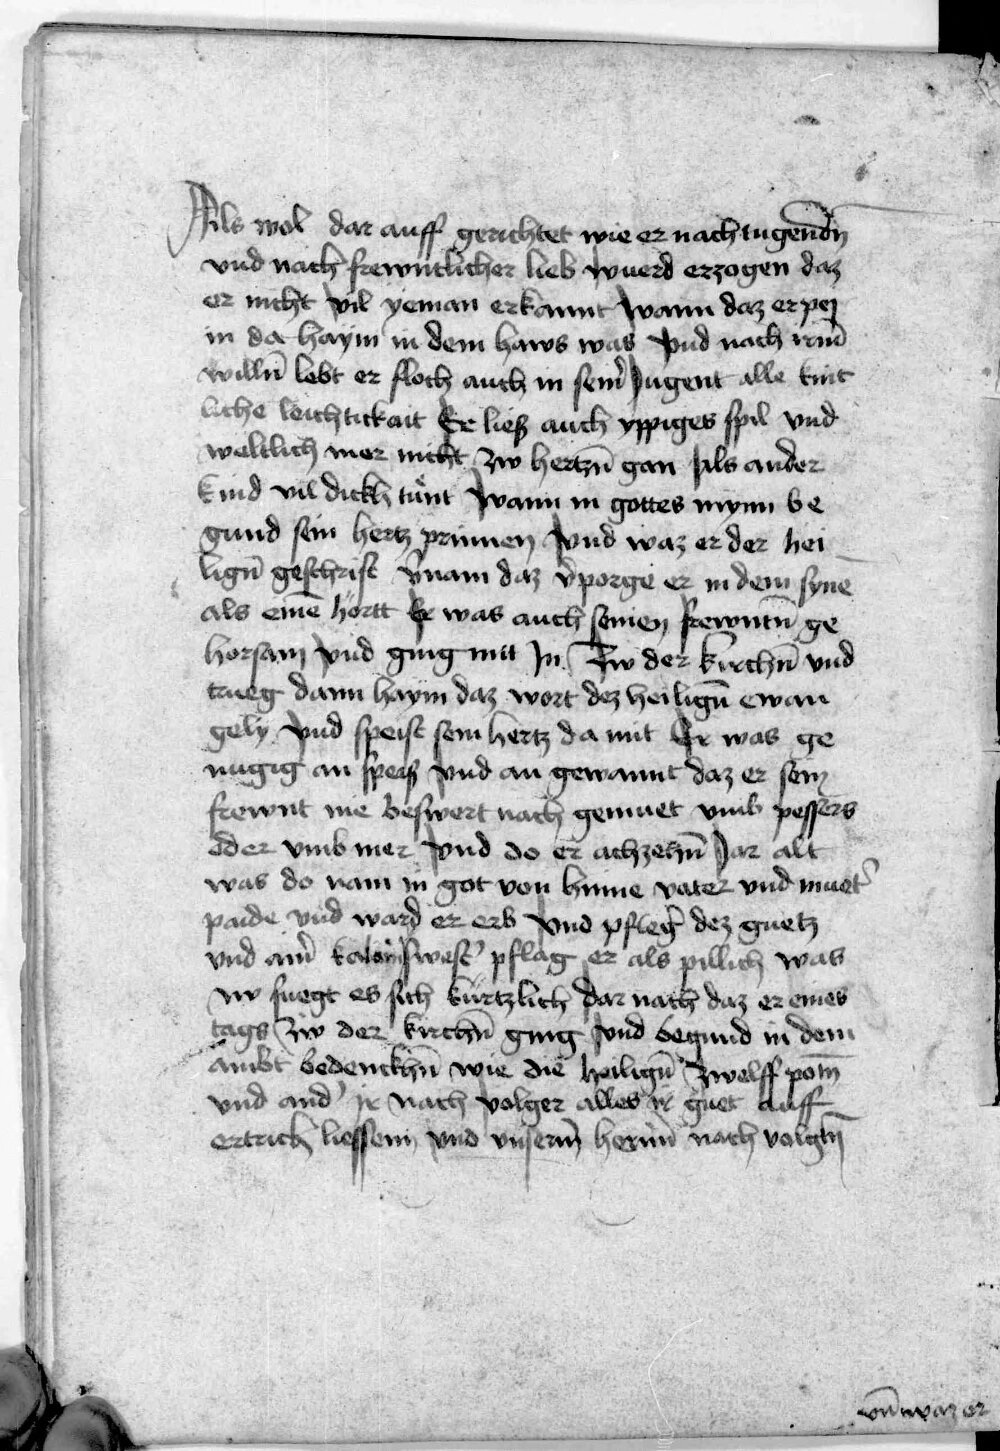 Als wol dar auff gerichtet wie er nach tugendn̄
vnd nach frewntlicher lieb wuerd erzogen daz
er nicht vil yeman erkannt wann daz er pej
in da haym in dem haws was vnd nach irm̄
willn̄ lebt er floch auch in sein̄ Jugent alle kint
liche leichtickait Er lieſz auch yppiges ſpil vnd
weltlich mer nicht zw hertzn̄ gan Als ander
kind vil dickh tünt wann in gottes mynn be
gund ſein hertz prinnen vnd waz er der hei
lign̄ geſchrift v̄nam daz v̄porge er in dem ſyne
als einē hortt Er was auch ſeinen frewntn̄ ge
horſam vnd ging mit In Zw der kirchn̄ vnd
trueg dann haym daz wort dez heilign̄ ewan
gely vnd ſpeiſt ſein hertz da mit Er was ge
nugig an ſpeiſz vnd an gewannt daz er ſein
frewnt nie beſwert nach gemuet vmb peſſers
oder vmb mer vnd do er achzehn̄ Jar alt
was do nam in got von hinne vater vnd muet'
paide vnd ward er erb vnd pfleg' dez guetz
vnd ain' ſweſt' pflag er als pillich was
nv fuegt es ſich kürtzlich dar nach daz er eines
tags Zw der kirchn̄ ging vnd begund in dem
ambt bedenckhn̄ wie die heilign̄ Zwelff potn̄
vnd and' ir nach volger alles ir guet auff
ertrich lieſſenn vnd vnſerm̄ herrn̄ nach volgtn̄
vn̄ waz er